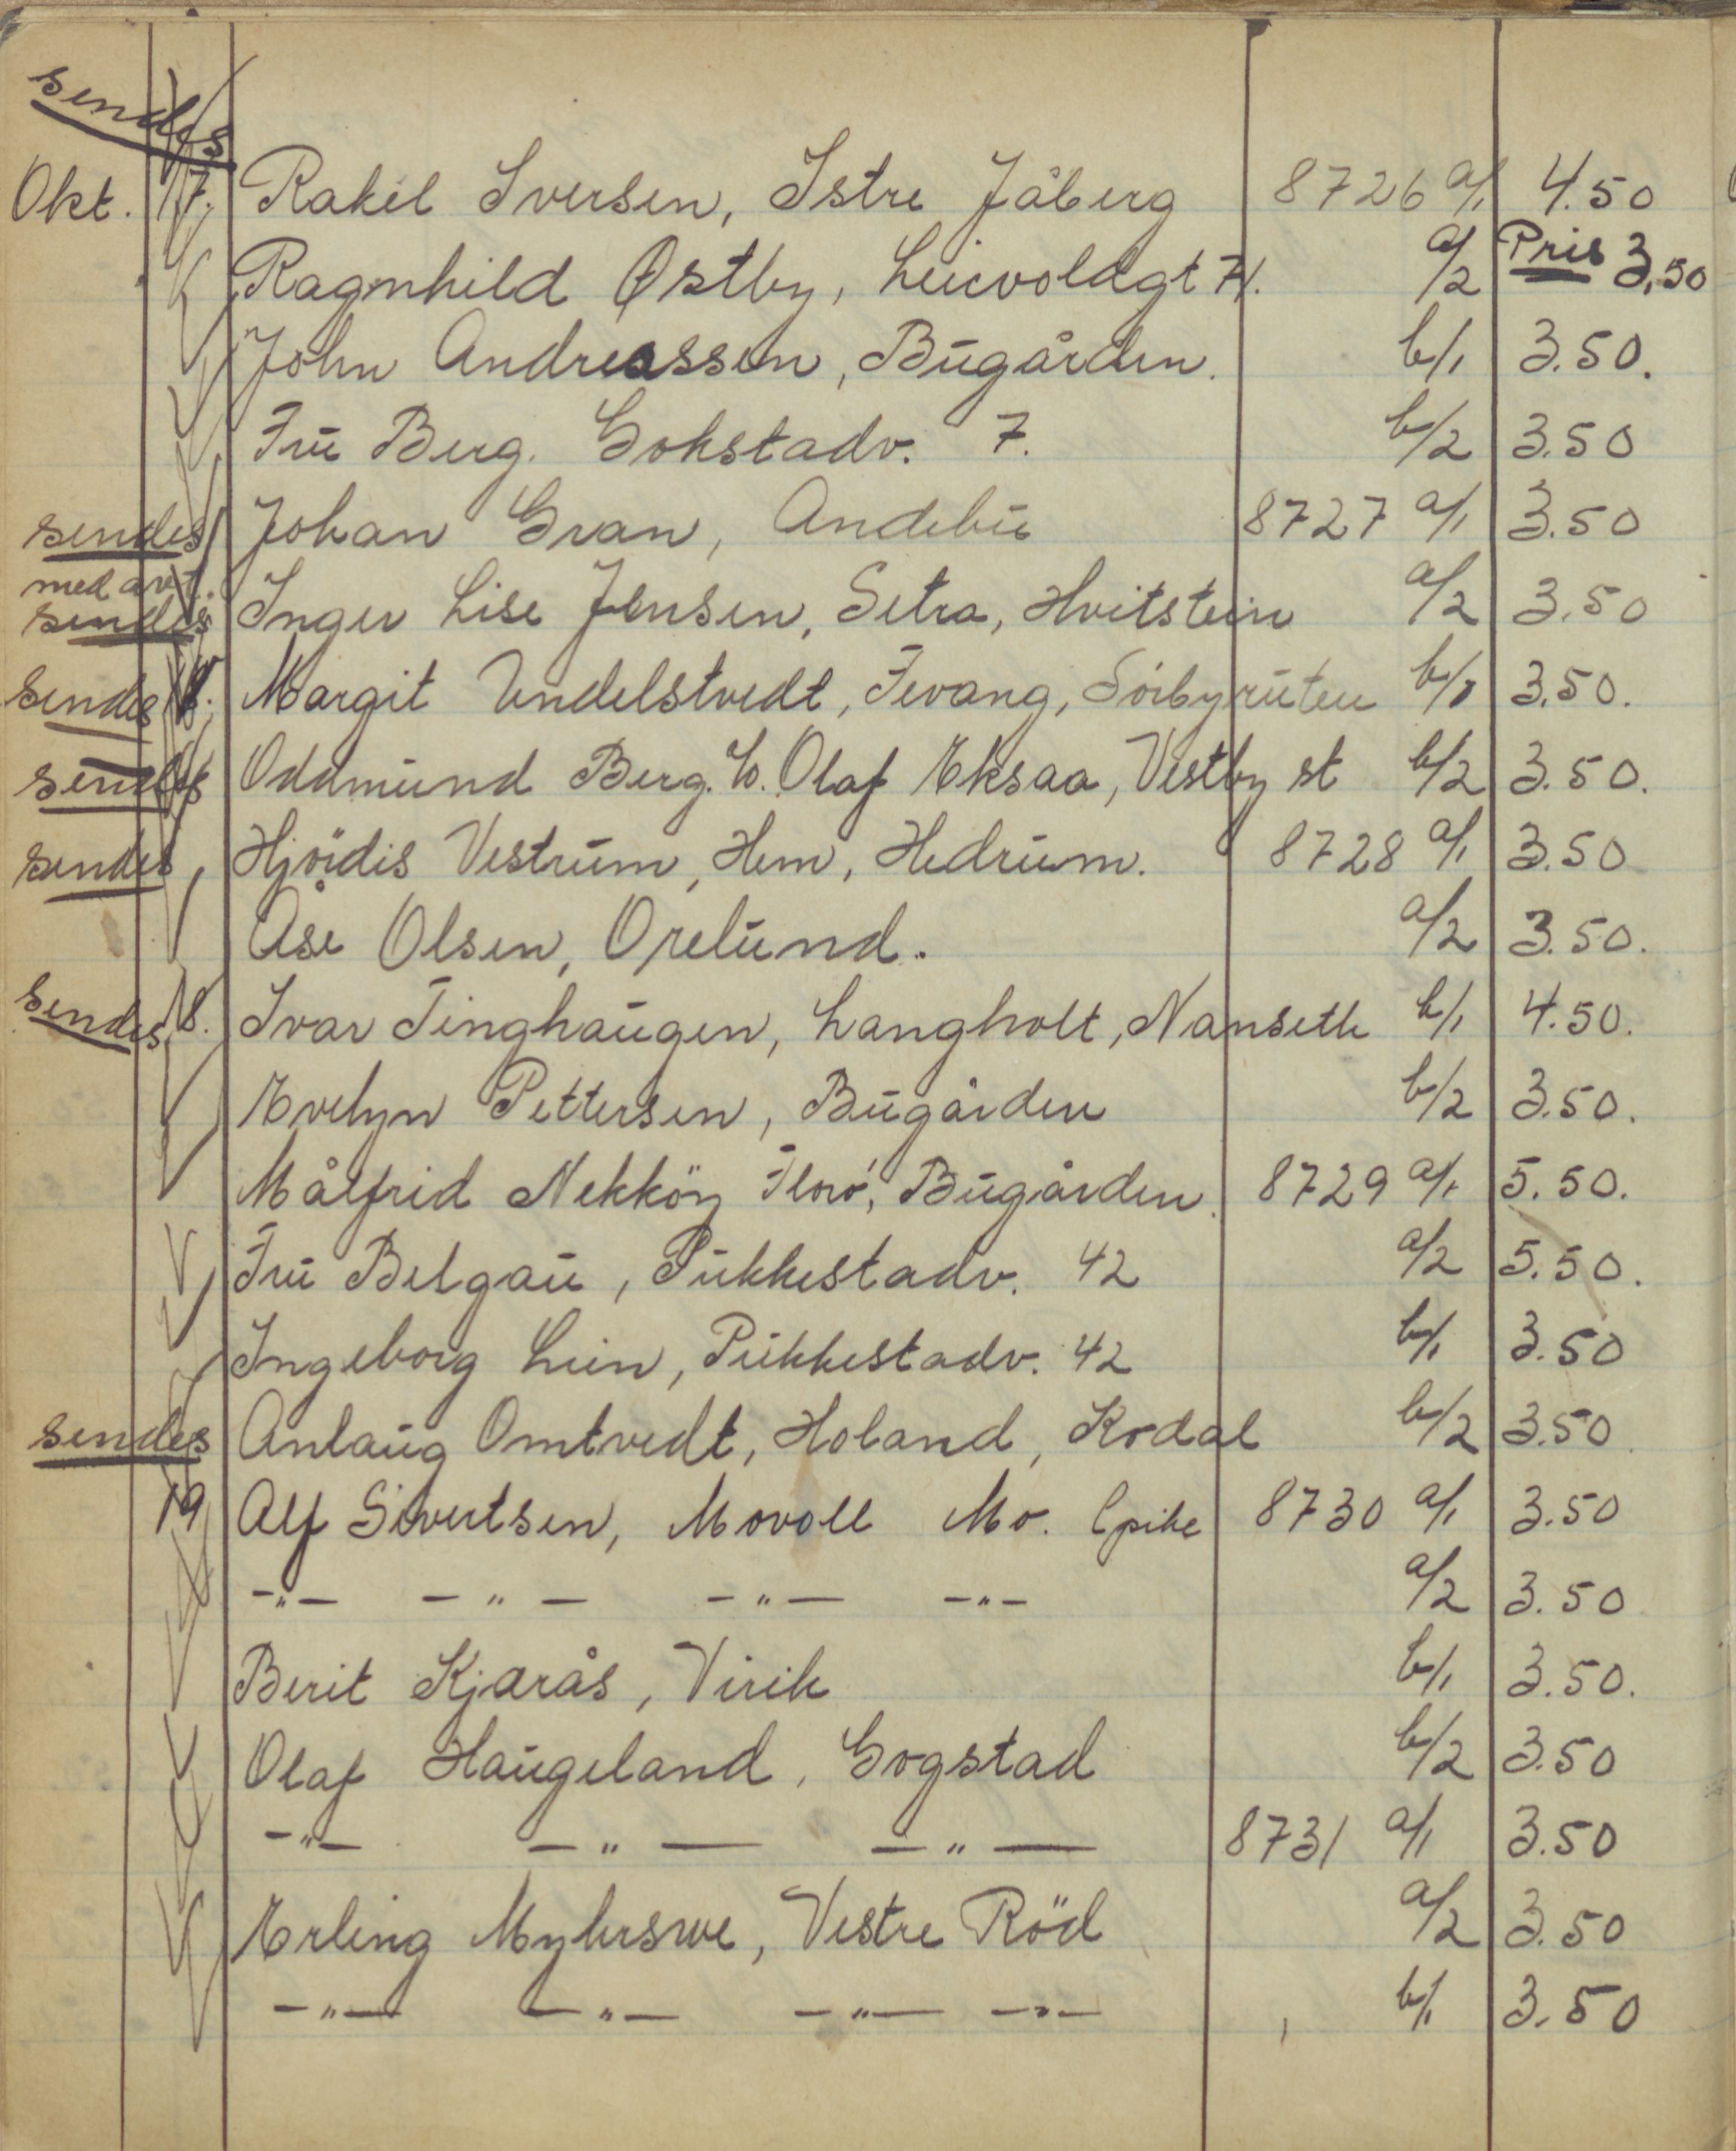 sendes
Okt. 17. Rakel Iversen, Istre Jåberg 8726 a/1 4.50
Ragnhild Østby, 71. a/2 Pris 3,50
John Andreassen, Bugården. b/1 3.50.
Fru Berg. Gokstadv. 7. b/2 3.50
sendes Johan Gran, Andebu 8727 a/1 3.50
med avt.
sendes Inger Lise Jensen, Setra, Hvitstein a/2 3.50
sendes 18. Margit Undelstvedt, Fevang, Sörbyruten b/1 3.50.
sendes Oddmund Berg. Olaf Eksaa, Vestby st b/2 3.50.
sendes Hjördis Vestrum, Hem, Hedrum. 8728 a/1 3.50
Åse Olsen, Orelund. a/2 3.50.
sendes 18. Ivar Tinghaugen, Langholt, Nansett b/1 4.50.
Evelyn Pettersen, Bugården b/2 3.50.
Målfrid Nekköy Florö, Bugården. 8729 a/1 5.50.
Fru Belgau, Pukkestadv. 42 a/2 5.50.
Ingeborg Lien, Pukkestadv. 42 b/1 3.50
sendes Anlaug Omtvedt, Holand, Kodal b/2 3.50
19 Alf Sivertsen, Movoll Mo. 8730 a/1 3.50
-"- -"- -"- -"- a/2 3.50
Berit Kjærås, Virik b/1 3.50.
Olaf Haugeland, Gogstad b/2 3.50
-"- -"- -"- 8731 a/1 3.50
Erling Vestre Röd a/2 3.50
-"- -"- -"- -"- b/1 3.50